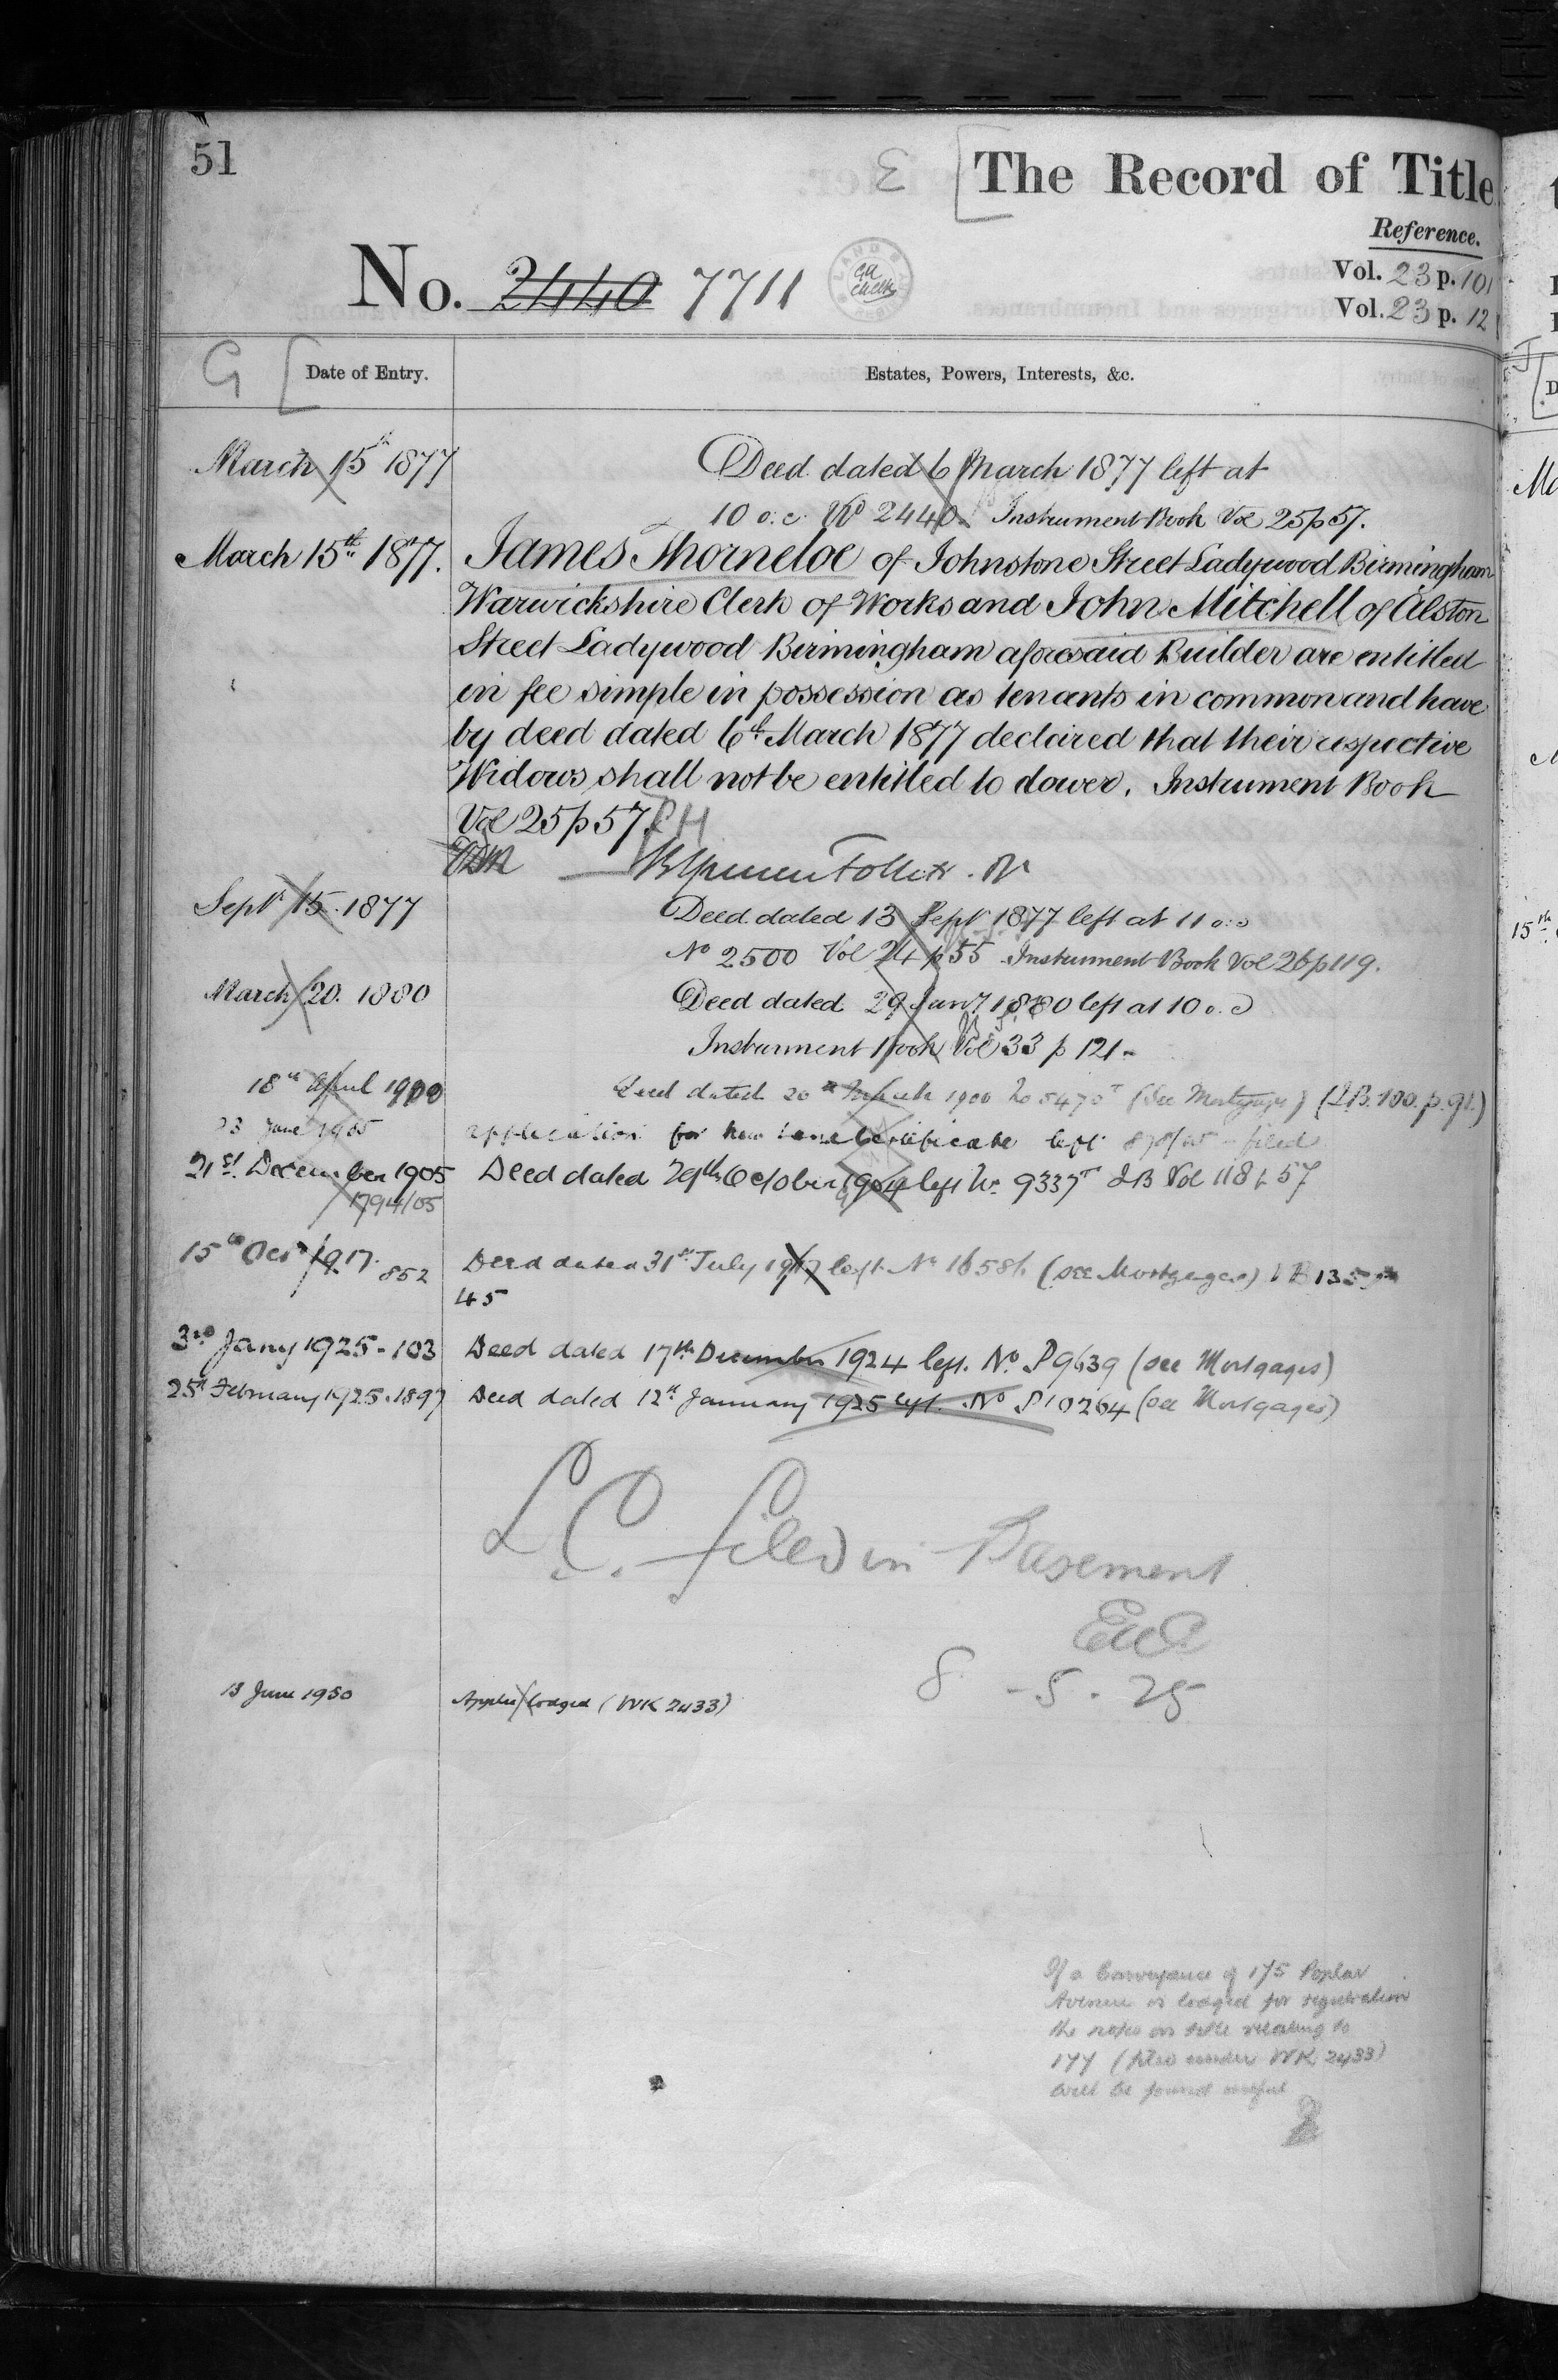 51
3 [ The Record of Title
Reference.
No. 2440 7711
Vol. 23 p. 101
Vol. 23 p. 12
G [ Date of Entry.
Estates, Powers, Interests, &c.
March 15th 1877
Deed dated 6 March 1877 left at
10 o.c. No 2440. Instrument Book Vol 25 p 57.
March 15th 1877.
James Thorneloe of Johnstone Street Ladywood Birmingham
Warwickshire Clerk of Works and John Mitchell of Alston
Street Ladywood Birmingham aforesaid Builder are entitled
in fee simple in possession as tenants in common and have
by deed dated 6th March 1877 declared that their respective
Widows shall not be entitled to dower. Instrument Book
Vol 25 p 57.
Sept 15. 1877
Deed dated 13 Sept 1877 left at 11 o.c
No 2500 Vol 24 p 55 Instrument Book Vol 26 p 119.
March 20. 1880
Deed dated 29 Jany 1880 left at 10 o.c
Instrument Book Vol 33 p 121.
18th April 1900
Deed dated 20th March 1900 No 5470T (See Mortgages) (I.B. 100. p. 91.)
23 June 1905
application for new Land Certificate left 878/05 - filed
21st December 1905
1794/05
Deed dated 29th October 1904 left No. 9337T IB Vol 118 p 57
15th Oct 1917. 852
Deed dated 31st July 1917 left No 16586 (see Mortgages) IB 135 p
45
3rd Jany 1925 - 103
Deed dated 17th December 1924 left. No. P9639 (see Mortgages)
25th February 1925. 1897
Deed dated 12th January 1925 left. No P10264 (see Mortgages)
L.C. filed in Basement
8 - 5 . 25
13 June 1950
Applic lodged (WK 2433)
If a Conveyance of 175 Poplar
Avenue is lodged for registration
the notes on title relating to
177 (filed under WK 2433)
will be found useful